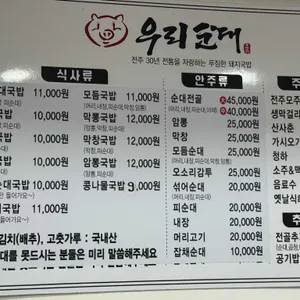 우리순대
전주 30년 전통을 자랑하는 푸짐한 돼지국밥
식사류
대국밥 11,000원
피순대)
국밥 10,000원
국밥 10,000원
국밥 10,000원
국밥 10,000원
순대국밥 10,000원
국밥 11,000원
모듬국밥 11,000원
막콩국밥 12,000원
막창국밥 12,000원
암뽕국밥 12,000원
콩나물국밥 9,000원
안주류
순대전골 대 45,000원
40,000원
암뽕 25,000원
막창 25,000원
모듬순대 25,000원
오소리감투 25,000원
섞어순대 20,000원
피순대 20,000원
내장 20,000원
머리고기 20,000원
잡채순대 10,000원
주
전주모주
생막걸리
산사춘
가시오가
청하
소주&맥
음료수
옛날식혜
전골추
공기밥
김치(배추), 고춧가루 : 국내산
대를 못드시는 분들은 미리 말씀해주세요